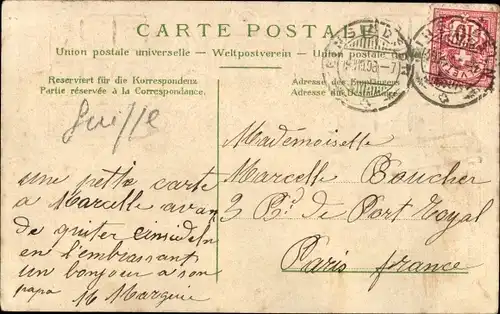 CARTE POSTALE
Union postale universelle. – Weltpostverein. – Union postale
Reserviert für die Korrespondenz
Partie réservée à la Correspondance.
Adresse des Empfängers
Adresse du Destinataire
Suisse
10
Mademoiselle
Marcelle Boucher
3 Bd de Port Royal
Paris france
une petite carte
a Marcelle avan
de quiter einsiedeln
en l'embrassant
un bonjour a son
papa M Margerie